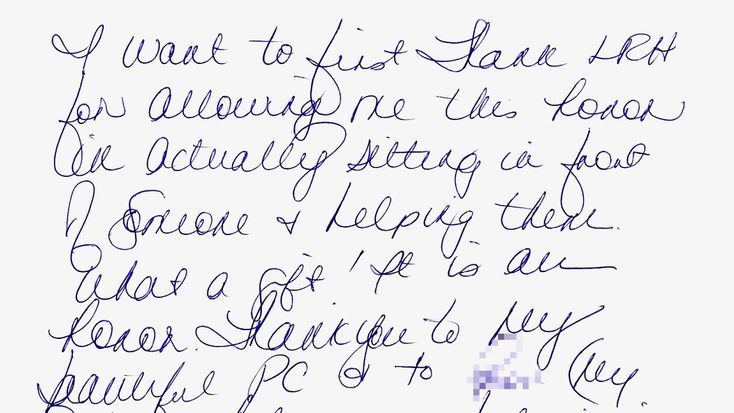 I want to first thank LRH
for allowing me this honor
in actually sitting in front
of someone & helping them.
What a gift! It is an
honor. Thank you to my
beautiful PC & to (my